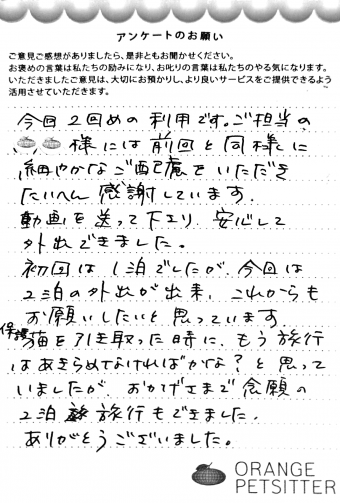 アンケートのお願い
ご意見ご感想がありましたら、是非ともお聞かせください。
お褒めの言葉は私たちの励みになり、お叱りの言葉は私たちのやる気になります。
いただきましたご意見は、大切にお預かりし、より良いサービスをご提供できるよう
活用させていただきます。
今回2回めの利用です。ご担当の
様には前回と同様に
細やかなご配慮をいただき
たいへん感謝しています。
動画を送って下さり、安心して
外出できました。
初回は1泊でしたが、今回は
2泊の外出が出来、これからも
お願いしたいと思っています。
保護猫を引き取った時に、もう旅行
はあきらめなければかな?と思って
いましたが、おかげさまで念願の
2泊旅行もできました。
ありがとうございました。
ORANGE
PETSITTER